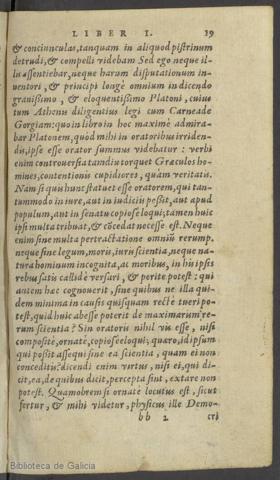 LIBER I. 19
& conciunculas, tanquam in aliquod pistrinum
detrudi, & compelli videbam Sed ego neque il-
lis assentiebar, neque harum disputationum in-
ventori, & principi longè omnium in dicendo
gravissimo, & eloquentissimo Platoni, cuius
tum Athenis diligentius legi cum Carneade
Gorgiam: quo in libro in hoc maximè admira-
bar Platonem, quòd mihi in oratoribus irriden-
dis, ipse esse orator summus videbatur: verbi
enim controversia tandiu torquet Græculos ho-
mines, contentionis cupidiores, quàm veritatis.
Nam si quis hunc statuet esse oratorem, qui tan-
tummodo in iure, aut in iudiciis possit, aut apud
populum, aut in senatu copiosè loqui; tamen huic
ipsi multa tribuat, & cōcedat necesse est. Neque
enim sine multa pertractatione omniū rerum p.
neque sine legum, moris, iuris scientia, neque na-
tura hominum incognita, ac moribus, in his ipsis
rebus satis callidè versari, & peritè potest: qui
autem hæc cognoverit, sine quibus ne illa qui-
dem minima in causis quisquam rectè tueri po-
test, quid huic abesse poterit de maximarum re-
rum scientia? Sin oratoris nihil vis esse, nisi
compositè, ornatè, copiosè eloqui; quæro, id ipsum
qui possit assequi sine ea scientia, quam ei non
conceditis? dicendi enim virtus, nisi ei, qui di-
cit, ea, de quibus dicit, percepta sint, extare non
potest. Quamobrem si ornatè locutus est, sicut
fertur, & mihi videtur, physicus ille Demo-
bb 2 cri
Biblioteca de Galicia